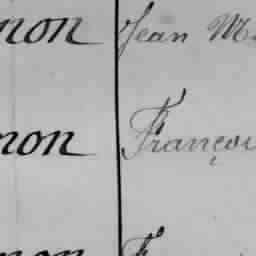 non Jean M
non Françoi
non F